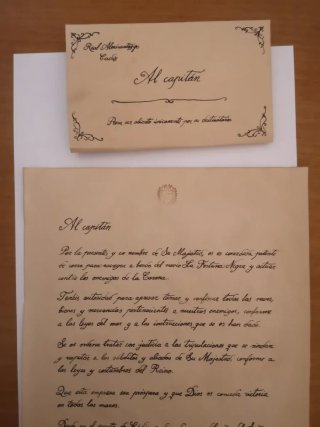 Real Almirantazgo
Cadiz
Al capitán
Para ser abierto únicamente por su destinatario
Al capitán
Por la presente, y en nombre de Su Majestad, se os concede patente
de corso para navegar a bordo del navío La Fortuna Negra y actuar
contra los enemigos de la Corona.
Tenéis autoridad para apresar, tomar y confiscar todas las naves,
bienes y mercancías pertenecientes a nuestros enemigos, conforme
a las leyes del mar y a las instrucciones que se os han dado.
Se os ordena tratar con justicia a las tripulaciones que se rindan
y respetar a los súbditos y aliados de Su Majestad, conforme a
las leyes y costumbres del Reino.
Que esta empresa sea próspera y que Dios os conceda victoria
en todos los mares.